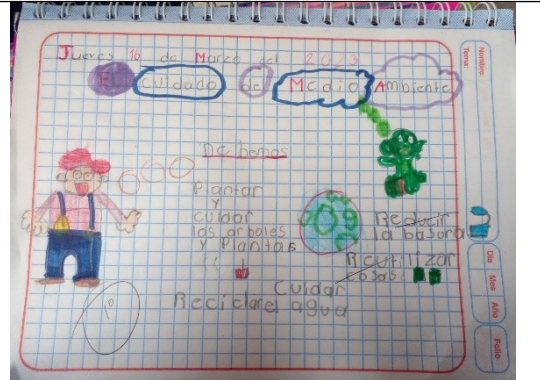 Jueves 16 de Marzo del 2023
El cuidado del Medio Ambiente
Debemos
Plantar
y
cuidar
los arboles
y Plantas
Reducir
la basura
Reutilizar
Cuidar
el agua
Reciclar
1°
Nombre:
Tema:
Dia Mes Año
Folio